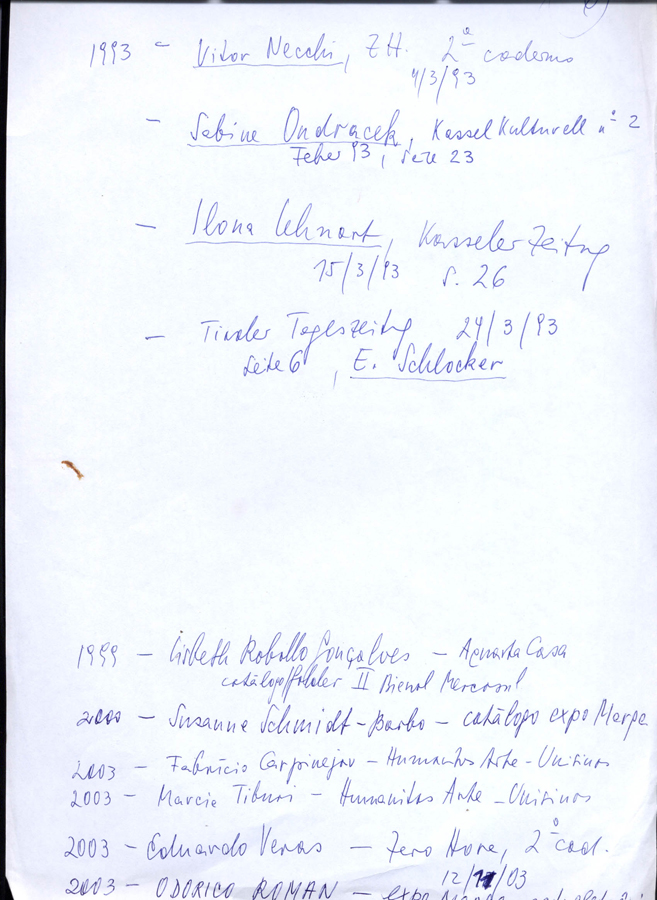 1993 - Vitor Necchi, ZH. 2º caderno
4/3/93
- Sabine Ondracek, Kassel Kulturell nº 2
Feber 93, Seite 23
- Ilona Lehnart, Kasseler Zeitung
15/3/93 S. 26
- Tiroler Tageszeitung 24/3/93
Seite 6, E. Schlocker
1999 - Lisbeth Rebollo Gonçalves - A Quarta Casa
catálogo/folder II Bienal Mercosul
2000 - Susanne Schmidt-Barbo - catálogo expo Marga
2003 - Fabrício Carpinejar - Humanitas Arte - Unisinos
2003 - Marcia Tiburi - Humanitas Arte - Unisinos
2003 - Eduardo Veras - Zero Hora, 2º cad.
12/11/03
2003 - ODORICO ROMAN - expo